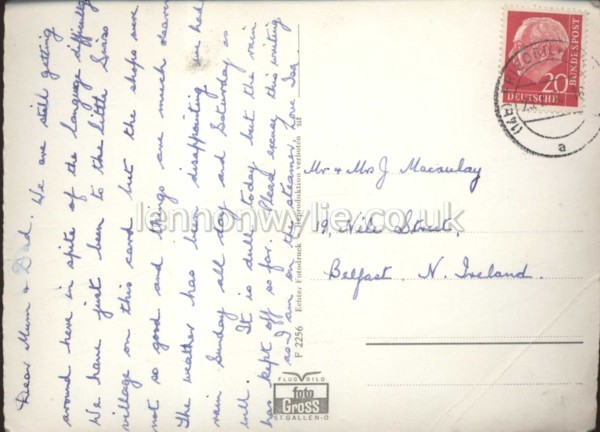 Dear Mum & Dad. We are still getting
around here in spite of the language difficulty
We have just been to the little Swiss
village on this card but the shops were
not so good and things are much dearer
The weather has been disappointing we had
rain Sunday all day and Saturday as
well. It is dull today but the rain
has kept off so far. Please excuse this writing
as I am on the steamer. Love Isa
F 2256 Echte Fotodruck Reproduktion verboten
FLUGBILD
foto
Gross
ST. GALLEN-O
20
DEUTSCHE
BUNDESPOST
a
Mr & Mrs J Macaulay
19, Nile Street,
Belfast. N. Ireland.
lennonwylie.co.uk